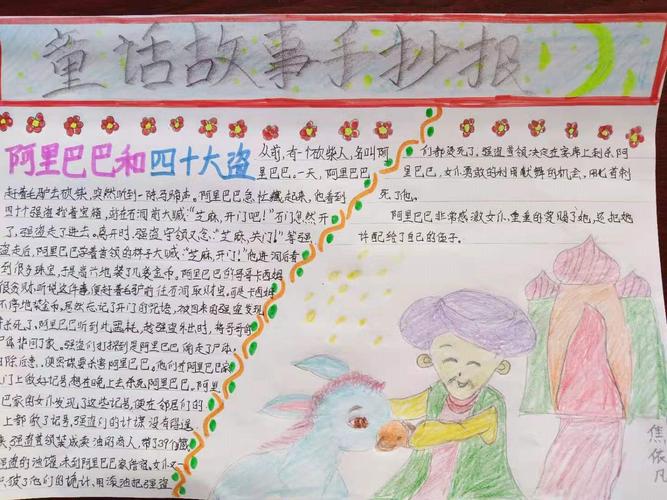 童话故事手抄报
阿里巴巴和四十大盗
从前,有一个砍柴人,名叫阿
里巴巴。一天,阿里巴巴
赶着毛驴去砍柴,突然听到一阵马蹄声。阿里巴巴急忙藏起来,他看到
四十个强盗抬着宝箱,站在石洞前大喊:“芝麻,开门吧!”石门忽然开
了,强盗走了进去。离开时,强盗守领又念:“芝麻,关门!”等强
盗走后,阿里巴巴学着首领的样子大喊:“芝麻,开门吧!”他进洞后看
到很多珠宝,于是高兴地装了几袋金币。阿里巴巴的哥哥卡西姆
很贪财,听说这件事,便赶着毛驴前往石洞取财宝。可是卡西姆
不停地装金币,居然忘记了开门的咒语,被回来的强盗发现
杀死了。阿里巴巴听到此噩耗,趁强盗外出时,将哥哥的
尸体背回了家。强盗们打探到是阿里巴巴偷走了尸体,
除后患,便密谋要杀害阿里巴巴。他们在阿里巴巴家
门上做好记号,想在晚上去杀死阿里巴巴。阿里
巴家的女仆发现了这些记号,便在邻居们的
上都做了记号,强盗们的计谋没有得逞
来,强盗首领装成卖油的商人,带了37个藏
强盗的油罐,来到阿里巴巴家借宿。女仆又一
识破了他们的诡计,用滚油把强盗
们都烫死了。强盗首领决定在宴席上刺杀阿
里巴巴,女仆勇敢的利用献舞的机会,用匕首刺
死了他。
阿里巴巴非常感激女仆,重重的赏赐了她,还把她
许配给了自己的侄子。
焦依凡